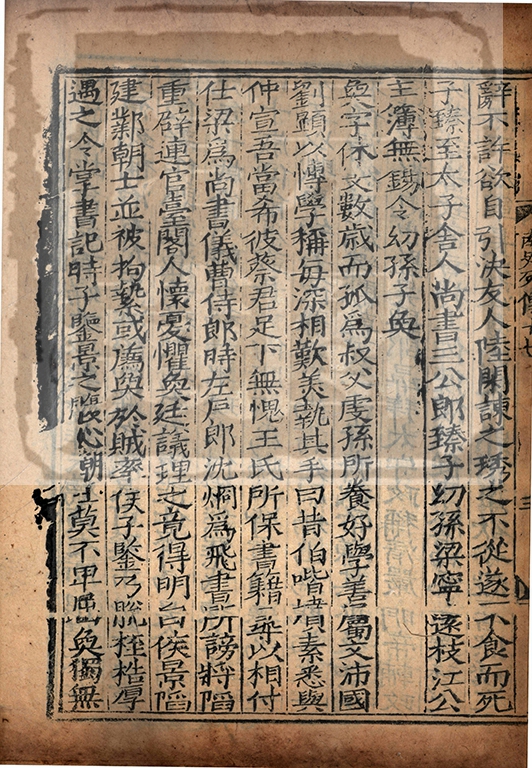 辭不許欲自引決友人陸閑諫之琇之不從遂不食而死
子臻至太子舍人尚書三公郎臻子幼孫梁寧逺枝江公
主簿無錫令幼孫子奐
奐字休文數歲而孤爲叔父虔孫所養好學善屬文沛國
劉顯以博學稱毋深相歎美執其手曰昔伯喈墳素悉與
仲宣吾當希彼蔡君足下無愧王氏所保書籍尋以相付
仕梁爲尚書儀曹侍郎時左戶郎沈炯爲飛書所謗將䧟
重辟連官臺閣人懷憂懼奐廷議理之竟得明白侯景䧟
建鄴朝士並被拘縶或薦奐於賊率侯子鑒乃脫桎梏厚
遇之令掌書記時子鑒景之腹心朝士莫不卑屈奐獨無